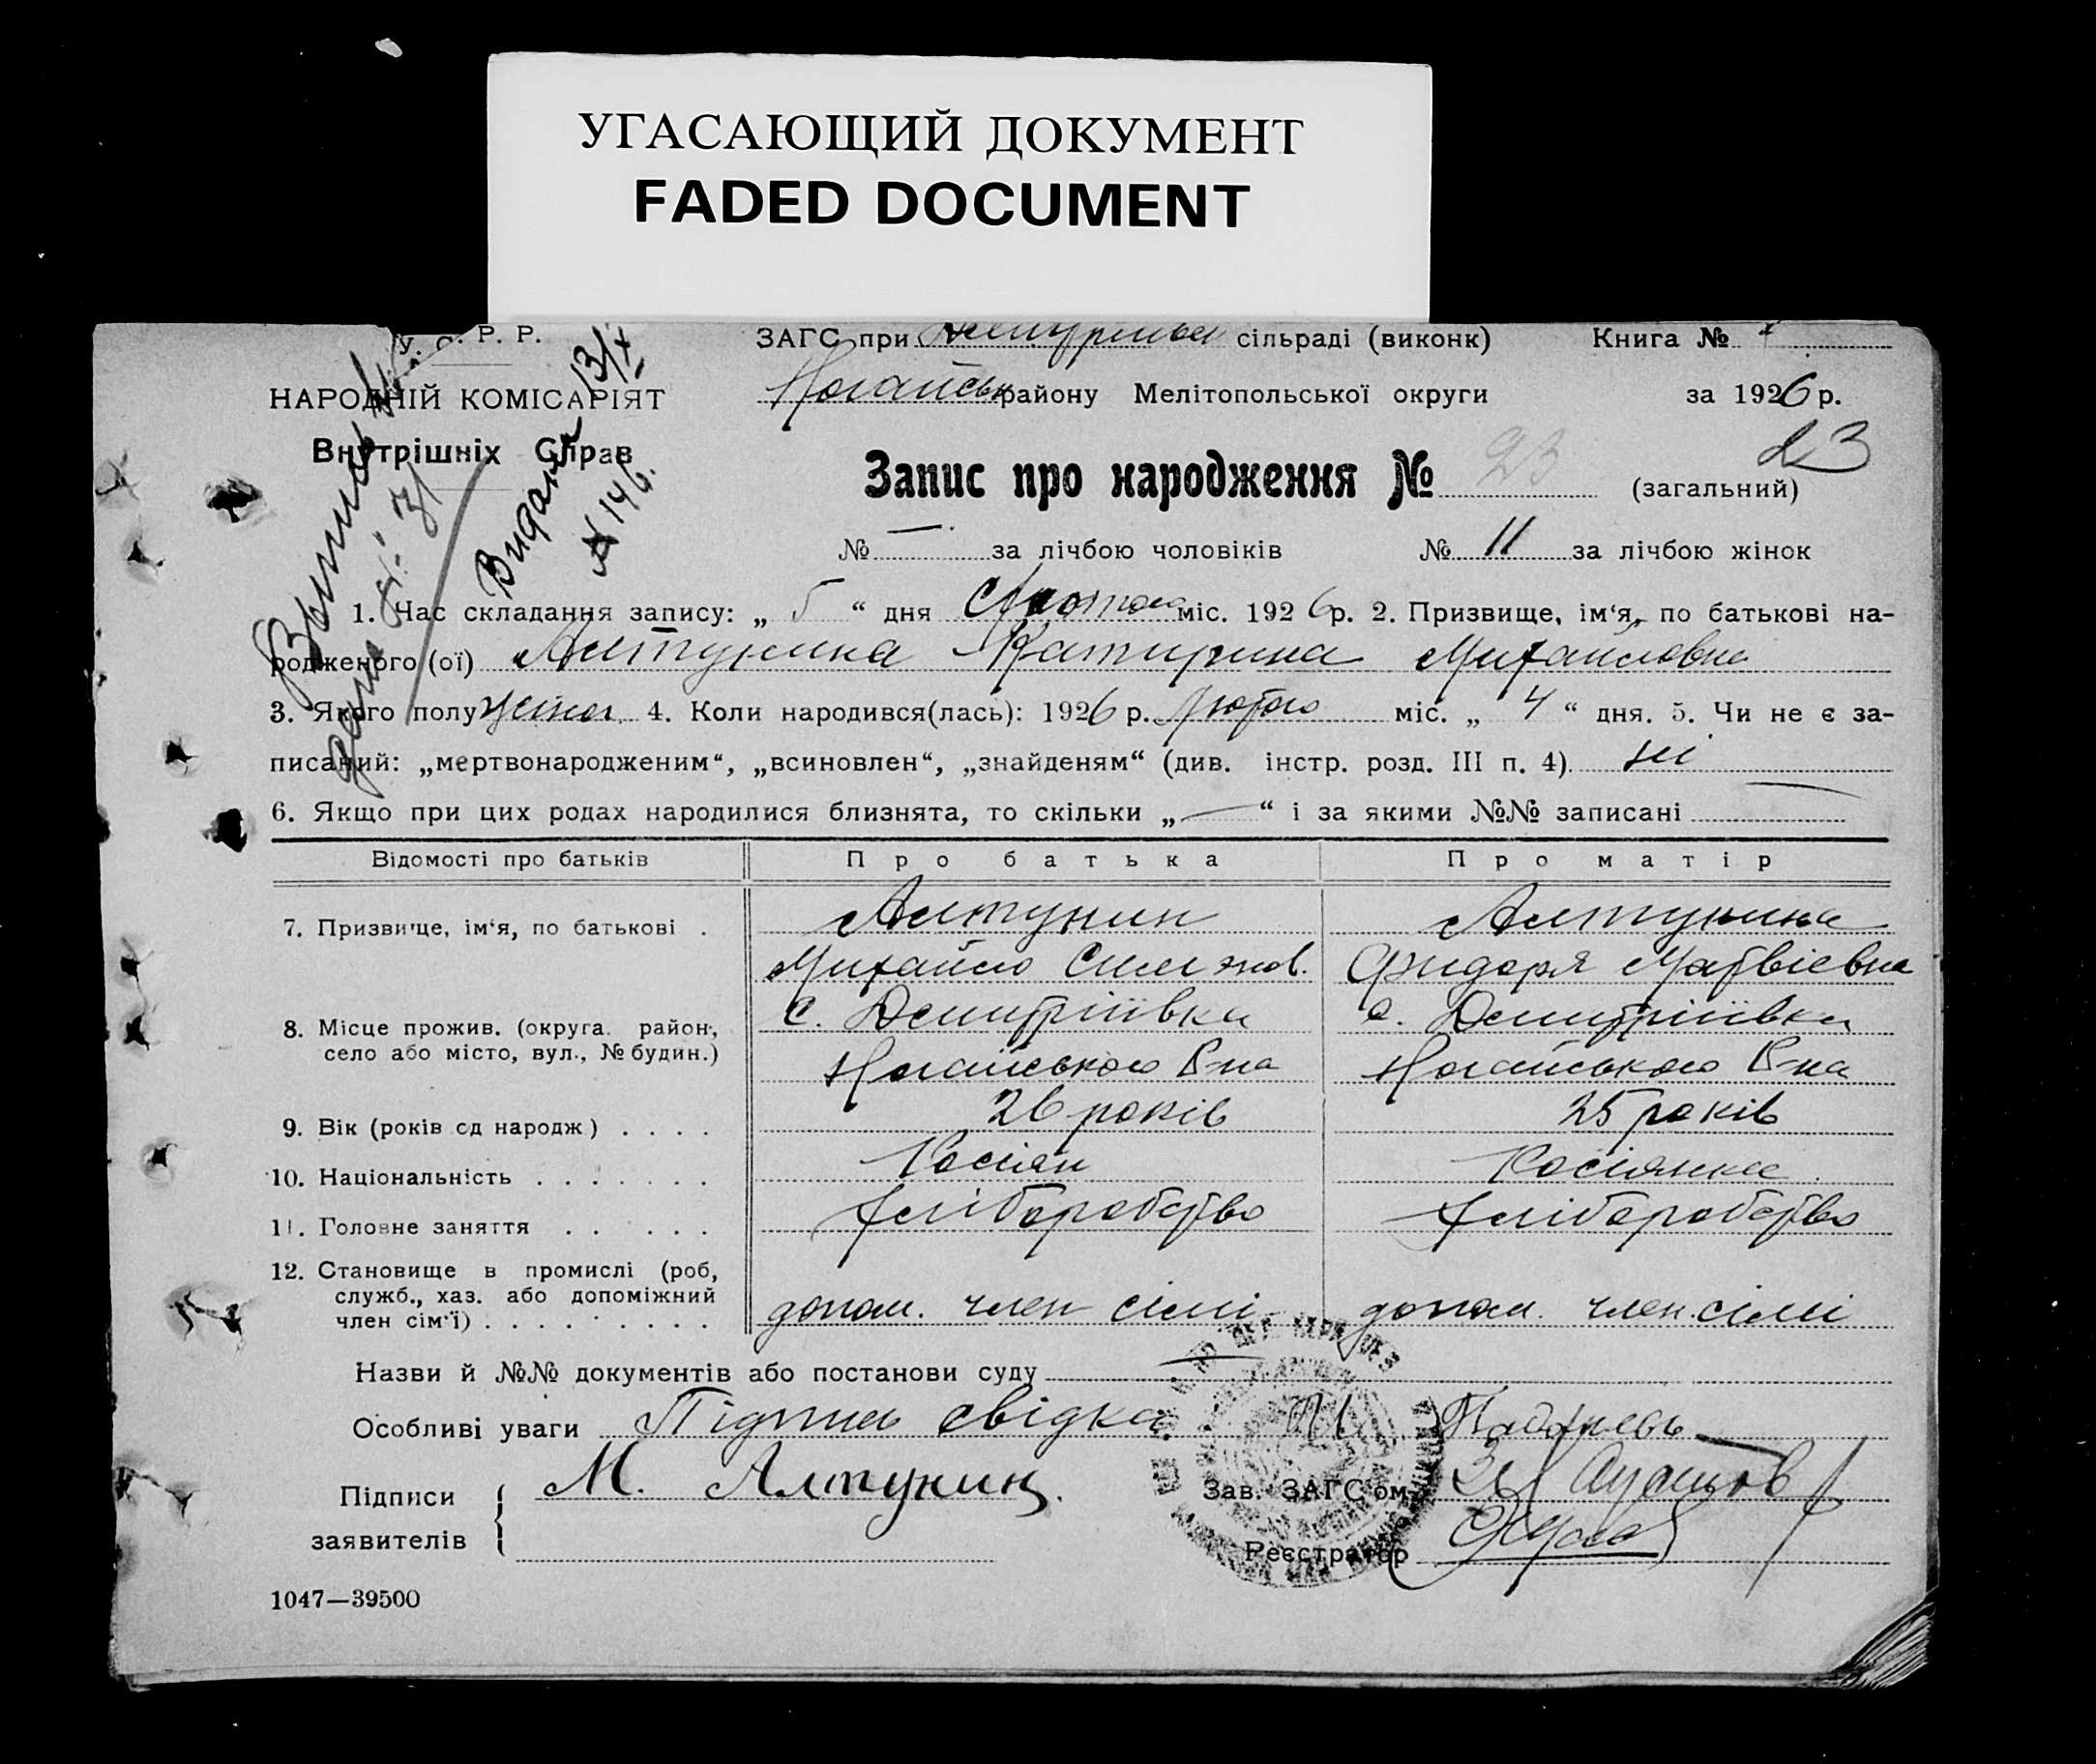 УГАСАЮЩИЙ ДОКУМЕНТ
FADED DOCUMENT
У. С. Р. Р.
НАРОДНІЙ КОМІСАРІЯТ
Внутрішніх Справ
Видана 13/X
№ 146.
ЗАГС при сільраді (виконк) Книга №
Ногайськ району Мелітопольської округи за 1926 р.
23
Запис про народження № 23 (загальний)
№ — за лічбою чоловіків № 11 за лічбою жінок
1. Час складання запису: „ 5 “ дня Лютого міс. 1926 р. 2. Призвище, ім‘я, по батькові на-
родженого (ої) Алтунина Катирина Михайловна
3. Якого полу жіноч. 4. Коли народився(лась): 1926 р. Лютого міс. „ 4 “ дня. 5. Чи не є за-
писаний: „мертвонародженим“, „всиновлен“, „знайденям“ (див. інстр. розд. III п. 4). ні
6. Якщо при цих родах народилися близнята, то скільки „ — “ і за якими №№ записані
Відомості про батьків Про батька Про матір
7. Призвище, ім‘я, по батькові . Алтунин Алтунина
Михайло Матвієвна
8. Місце прожив. (округа. район, с. Дмитріївка с. Дмитріївка
село або місто, вул., № будин.) Ногайського Р-на Ногайського Р-на
9. Вік (років од народж) . . . . 26 років 25 років
10. Національність . . . . . . . Росіян Росіянка
11. Головне заняття . . . . . Хліборобство Хліборобство
12. Становище в промислі (роб,
служб., хаз. або допоміжний
член сім‘ї) . . . . . . . . . допом. член сімі допом. член сімі
Назви й №№ документів або постанови суду —
Особливі уваги Підпись свідка
Підписи
заявителів
М. Алтунин.
Зав. ЗАГС‘ом
Реєстратор
1047—39500